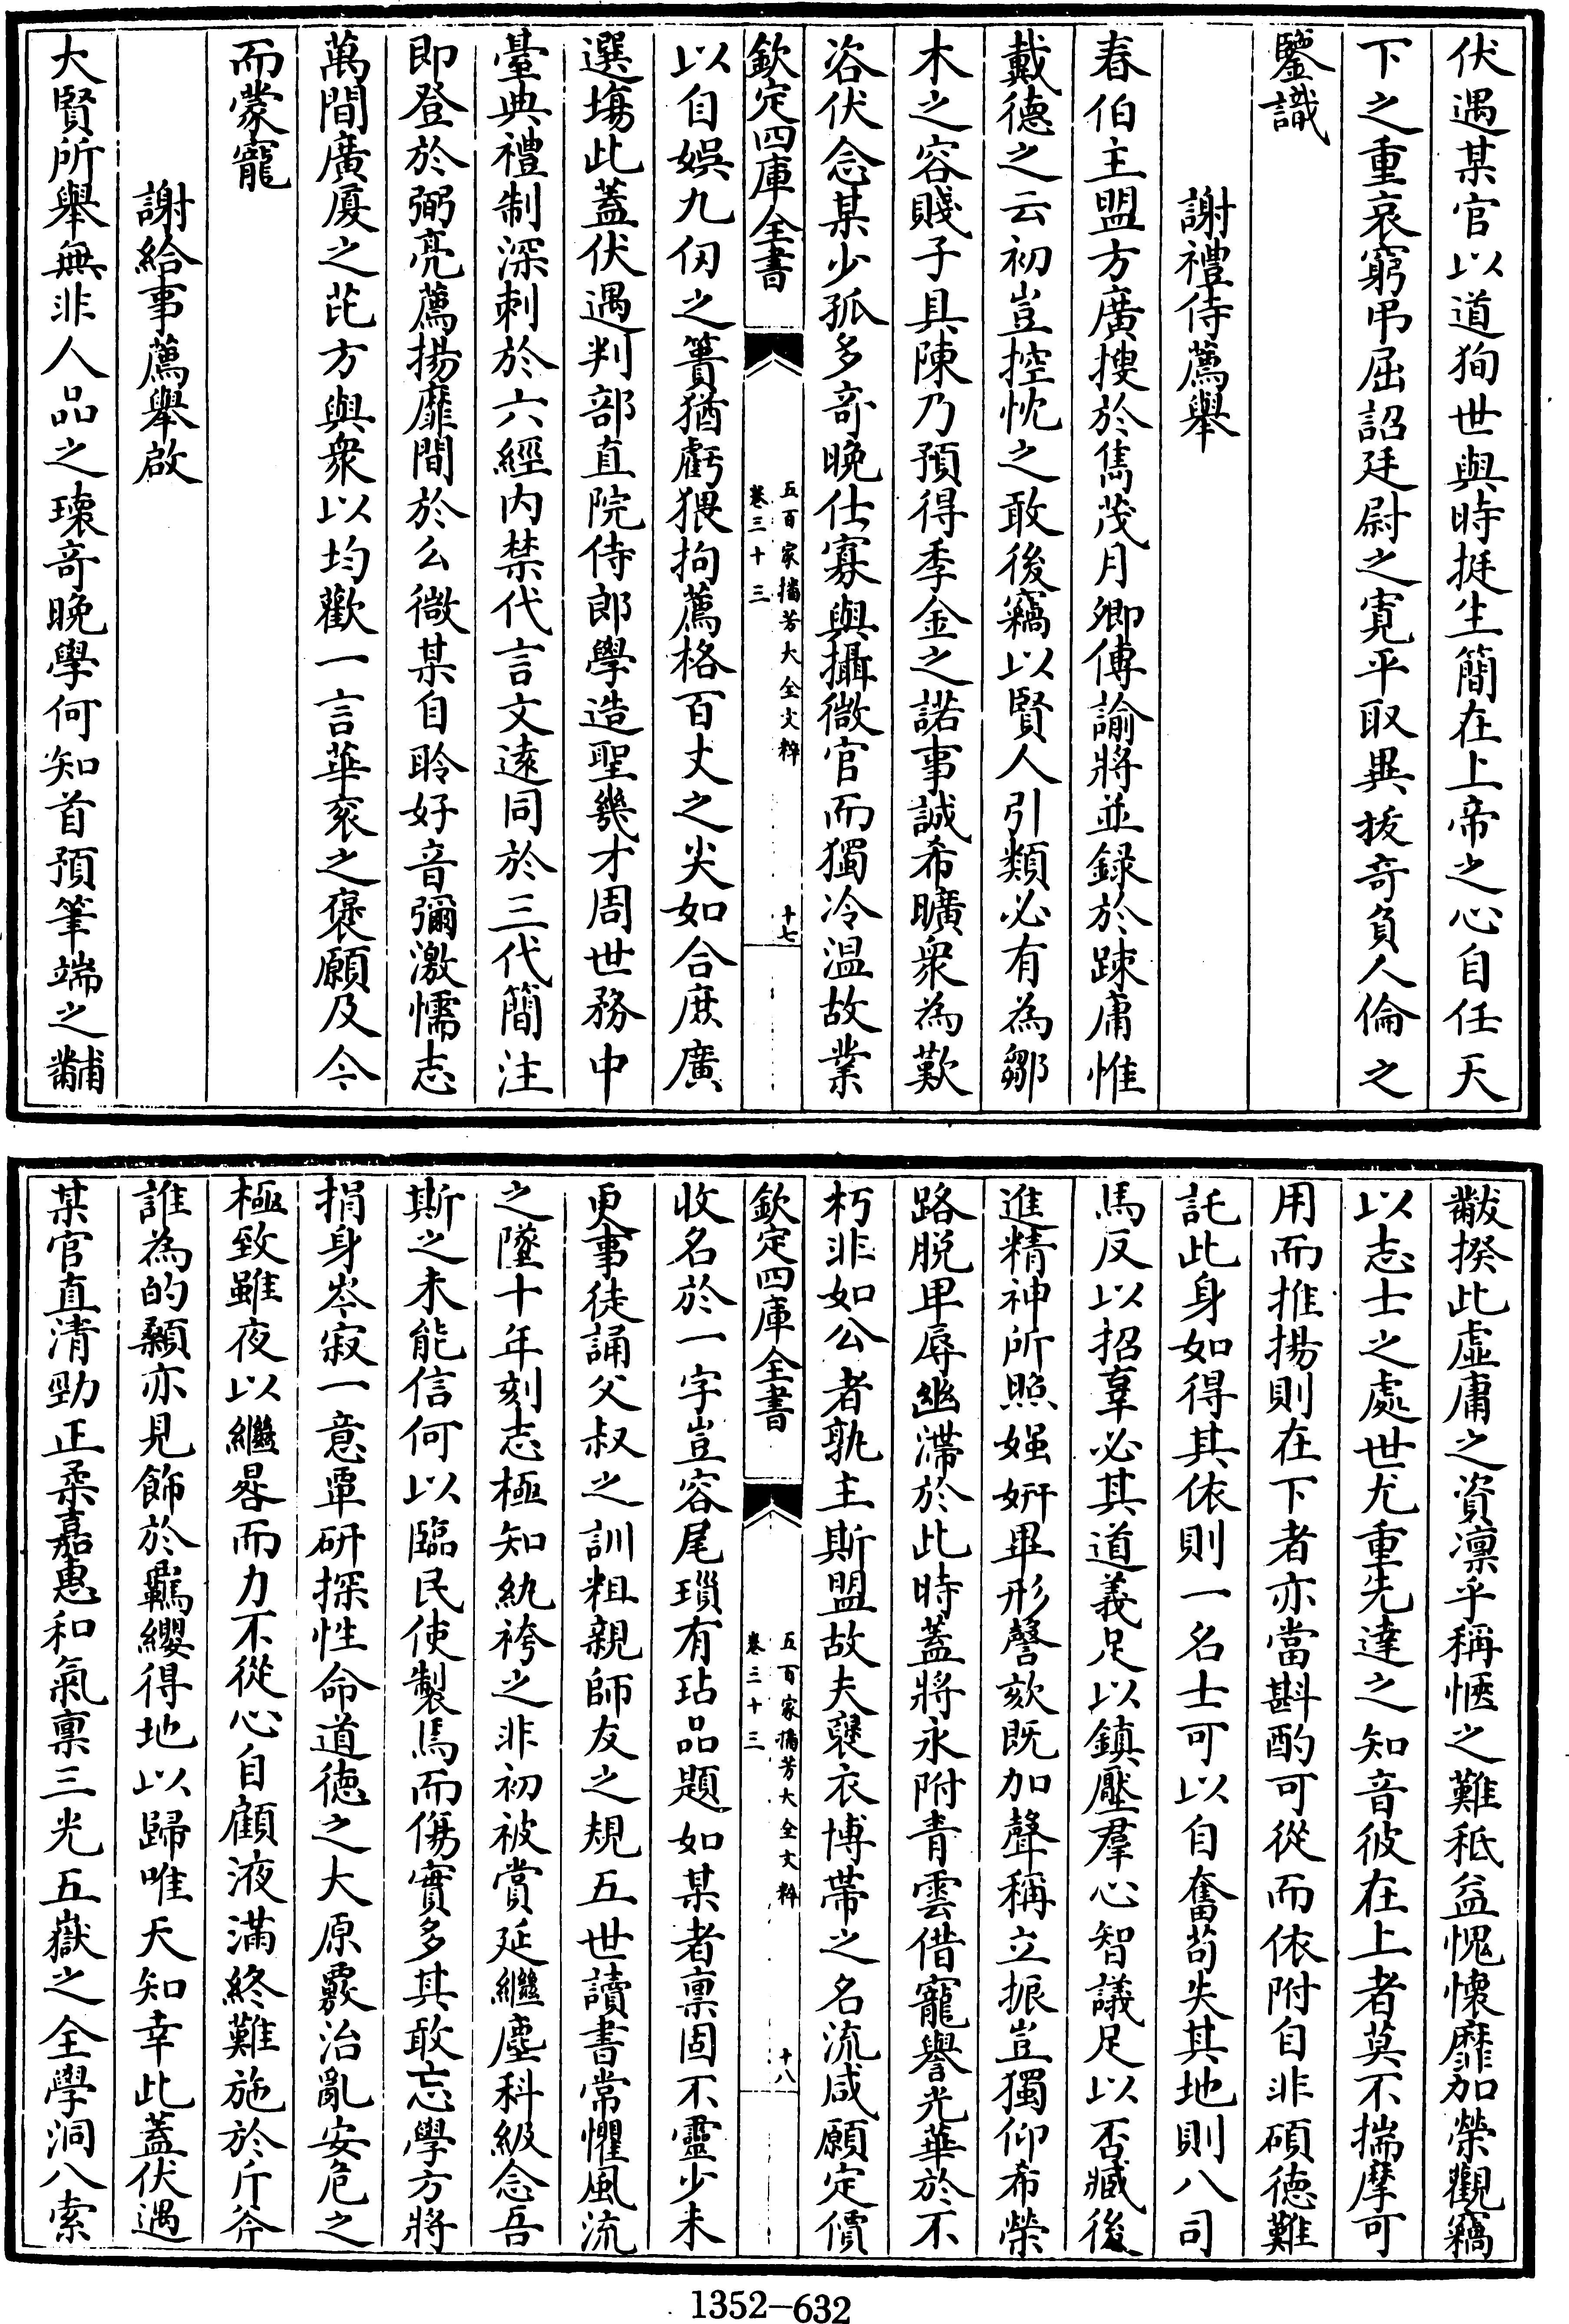 伏遇某官以道徇世與時挺生簡在上帝之心自任天
下之重哀窮弔屈詔廷尉之寛平取異拔竒負人倫之
鑒識
謝禮侍薦舉
春伯主盟方廣搜於雋茂月卿傳諭將並録於踈庸惟
戴德之云初豈控忱之敢後竊以賢人引類必有為鄒
木之容賤子具陳乃預得季金之諾事誠希曠衆為歎
咨伏念某少孤多竒晚仕寡與攝微官而獨冷温故業
欽定四庫全書
五百家播芳大全文粹
卷三十三
十七
以自娛九仞之簣猶虧猥拘薦格百丈之尖如合庶廣
選塲此蓋伏遇判部直院侍郎學造聖幾才周世務中
臺典禮制深刺於六經内禁代言文遠同於三代簡注
即登於弼亮薦揚靡間於么微某自聆好音彌激懦志
萬間廣厦之芘方與衆以均歡一言華衮之褒願及今
而蒙寵
謝給事薦舉啟
大賢所舉無非人品之瓌竒晚學何知首預筆端之黼
黻揆此虛庸之資凛乎稱愜之難秪益愧懷靡加榮觀竊
以志士之處世尤重先達之知音彼在上者莫不揣摩可
用而推揚則在下者亦當斟酌可從而依附自非碩德難
託此身如得其依則一名士可以自奮苟失其地則八司
馬反以招辜必其道義足以鎮壓羣心智議足以否臧後
進精神所照媸妍畢形謦欬既加聲稱立振豈獨仰希榮
路脱卑辱幽滯於此時蓋將永附青雲借寵譽光華於不
朽非如公者孰主斯盟故夫襃衣博帶之名流咸願定價
欽定四庫全書
五百家播芳大全文粹
卷三十三
十八
收名於一字豈容尾瑣有玷品題如某者禀固不靈少未
更事徒誦父叔之訓粗親師友之規五世讀書常懼風流
之墜十年刻志極知紈袴之非初被賞延繼塵科級念吾
斯之未能信何以臨民使製馬而傷實多其敢忘學方將
捐身岑寂一意覃研探性命道德之大原覈治亂安危之
極致雖夜以繼晷而力不從心自顧液滿終難施於斤斧
誰為的顙亦見飾於羈纓得地以歸唯天知幸此蓋伏遇
某官直清勁正柔嘉惠和氣禀三光五嶽之全學洞八索
1352-632